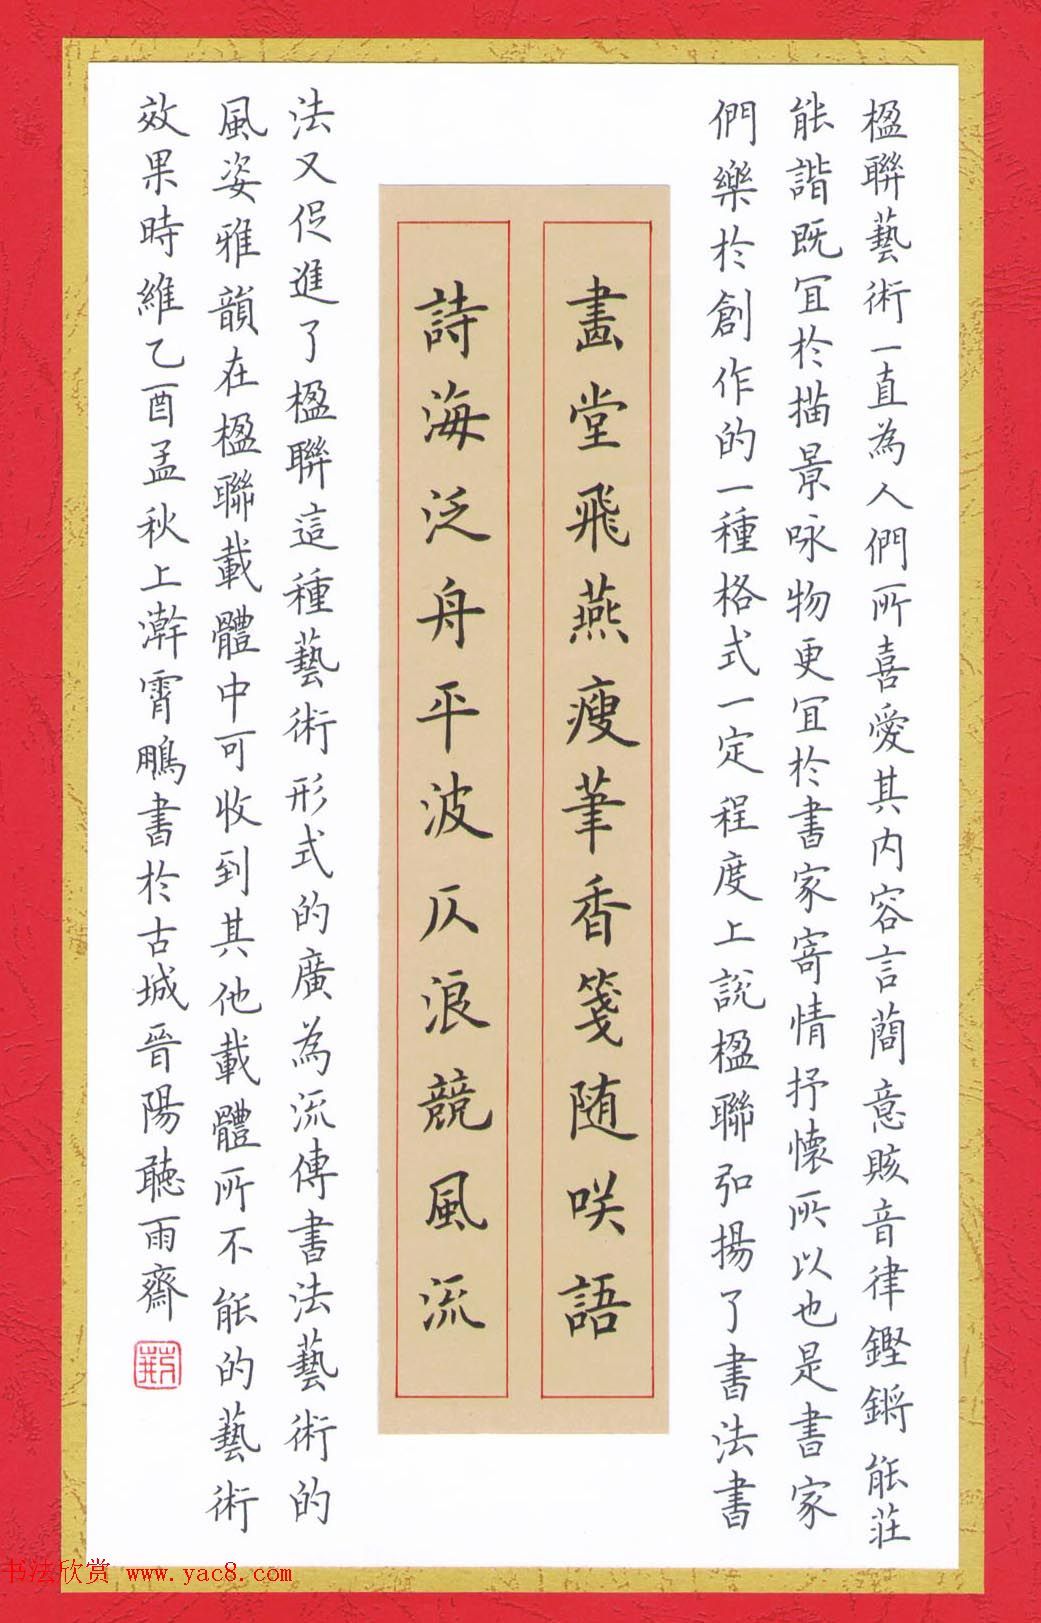 楹聯藝術一直為人們所喜愛其内容言蕳意賅音律鏗鏘能莊
能諧既宜於描景咏物更宜於書家寄情抒懷所以也是書家
們樂於創作的一種格式一定程度上說楹聯弘揚了書法書
畫堂飛燕瘦筆香箋随咲語
詩海泛舟平波仄浪競風流
法又促進了楹聯這種藝術形式的廣為流傳書法藝術的
風姿雅韻在楹聯載體中可收到其他載體所不能的藝術
效果時維乙酉孟秋上澣霄鵬書於古城晉陽聽雨齋
书法欣赏 www.yac8.com